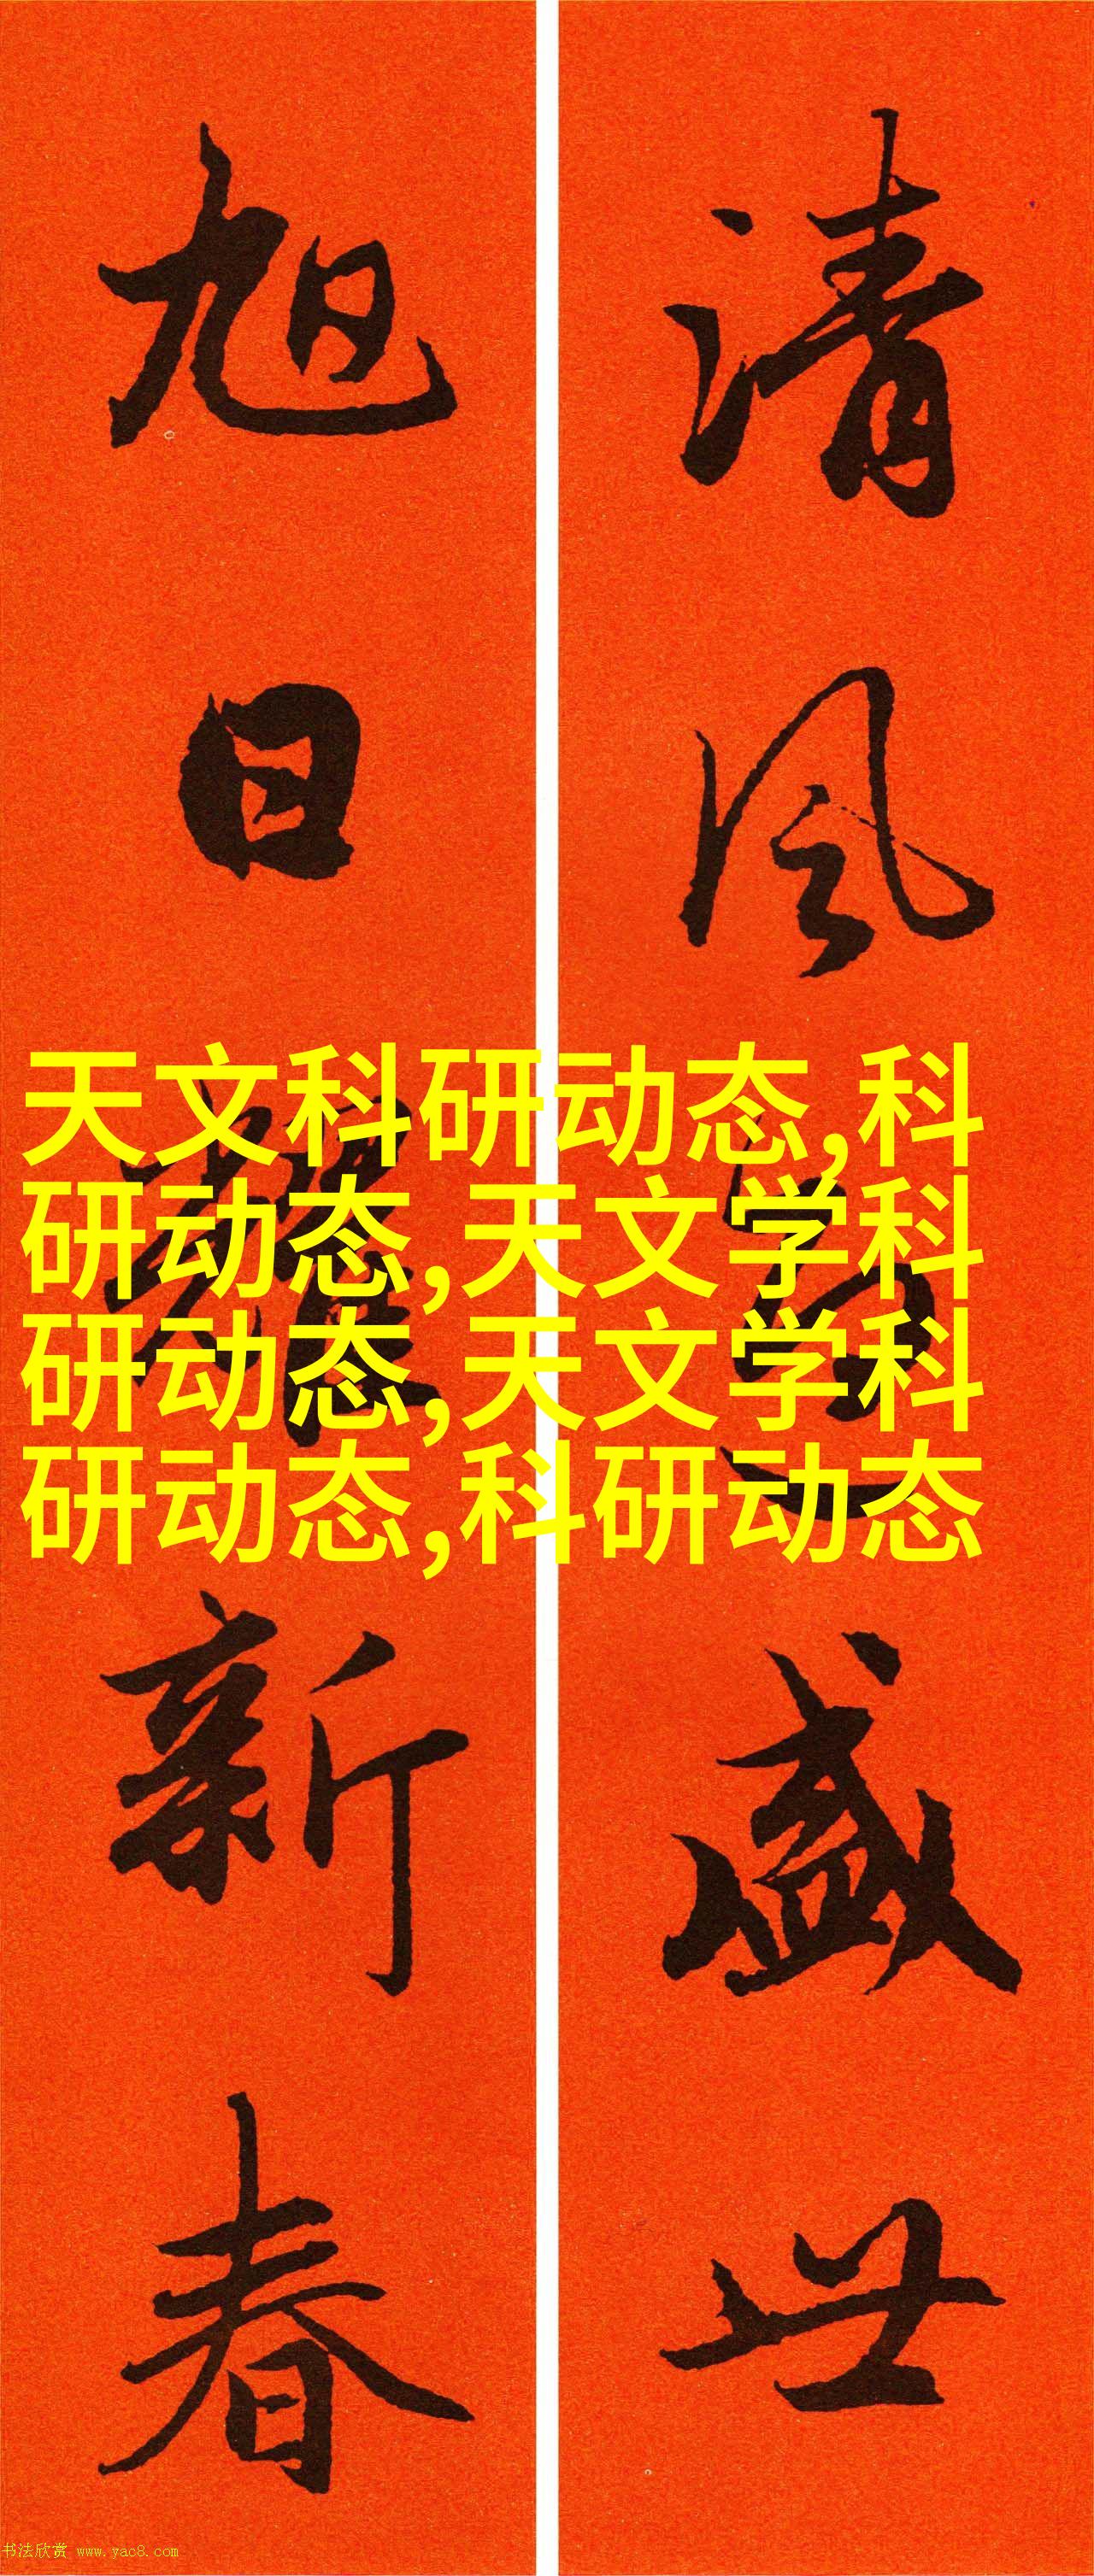 清风迎盛世
旭日耀新春
天文科研动态,科
研动态,天文学科
研动态,天文学科
研动态,科研动态
书法欣赏 www.yac8.com